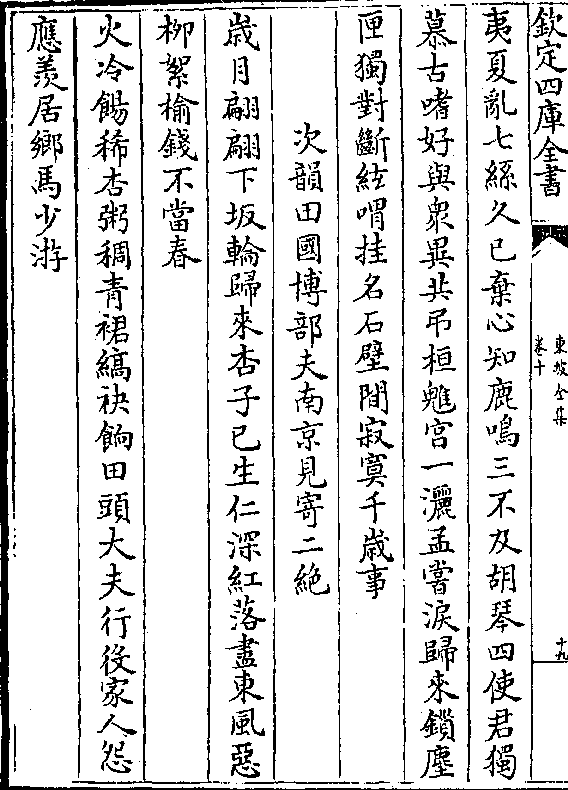 欽定四庫全書
東坡全集
卷十
十九
夷夏亂七絲久已棄心知鹿鳴三不及胡琴四使君獨
慕古嗜好與衆異共弔桓魋宮一灑孟嘗淚歸來鎖塵
匣獨對斷絃喟挂名石壁間寂寞千歲事
次韻田國博部夫南京見寄二絶
歳月翩翩下坂輪歸來杏子已生仁深紅落盡東風惡
柳絮榆錢不當春
火冷餳稀杏粥稠青裙縞袂餉田頭大夫行役家人怨
應羨居鄉馬少游